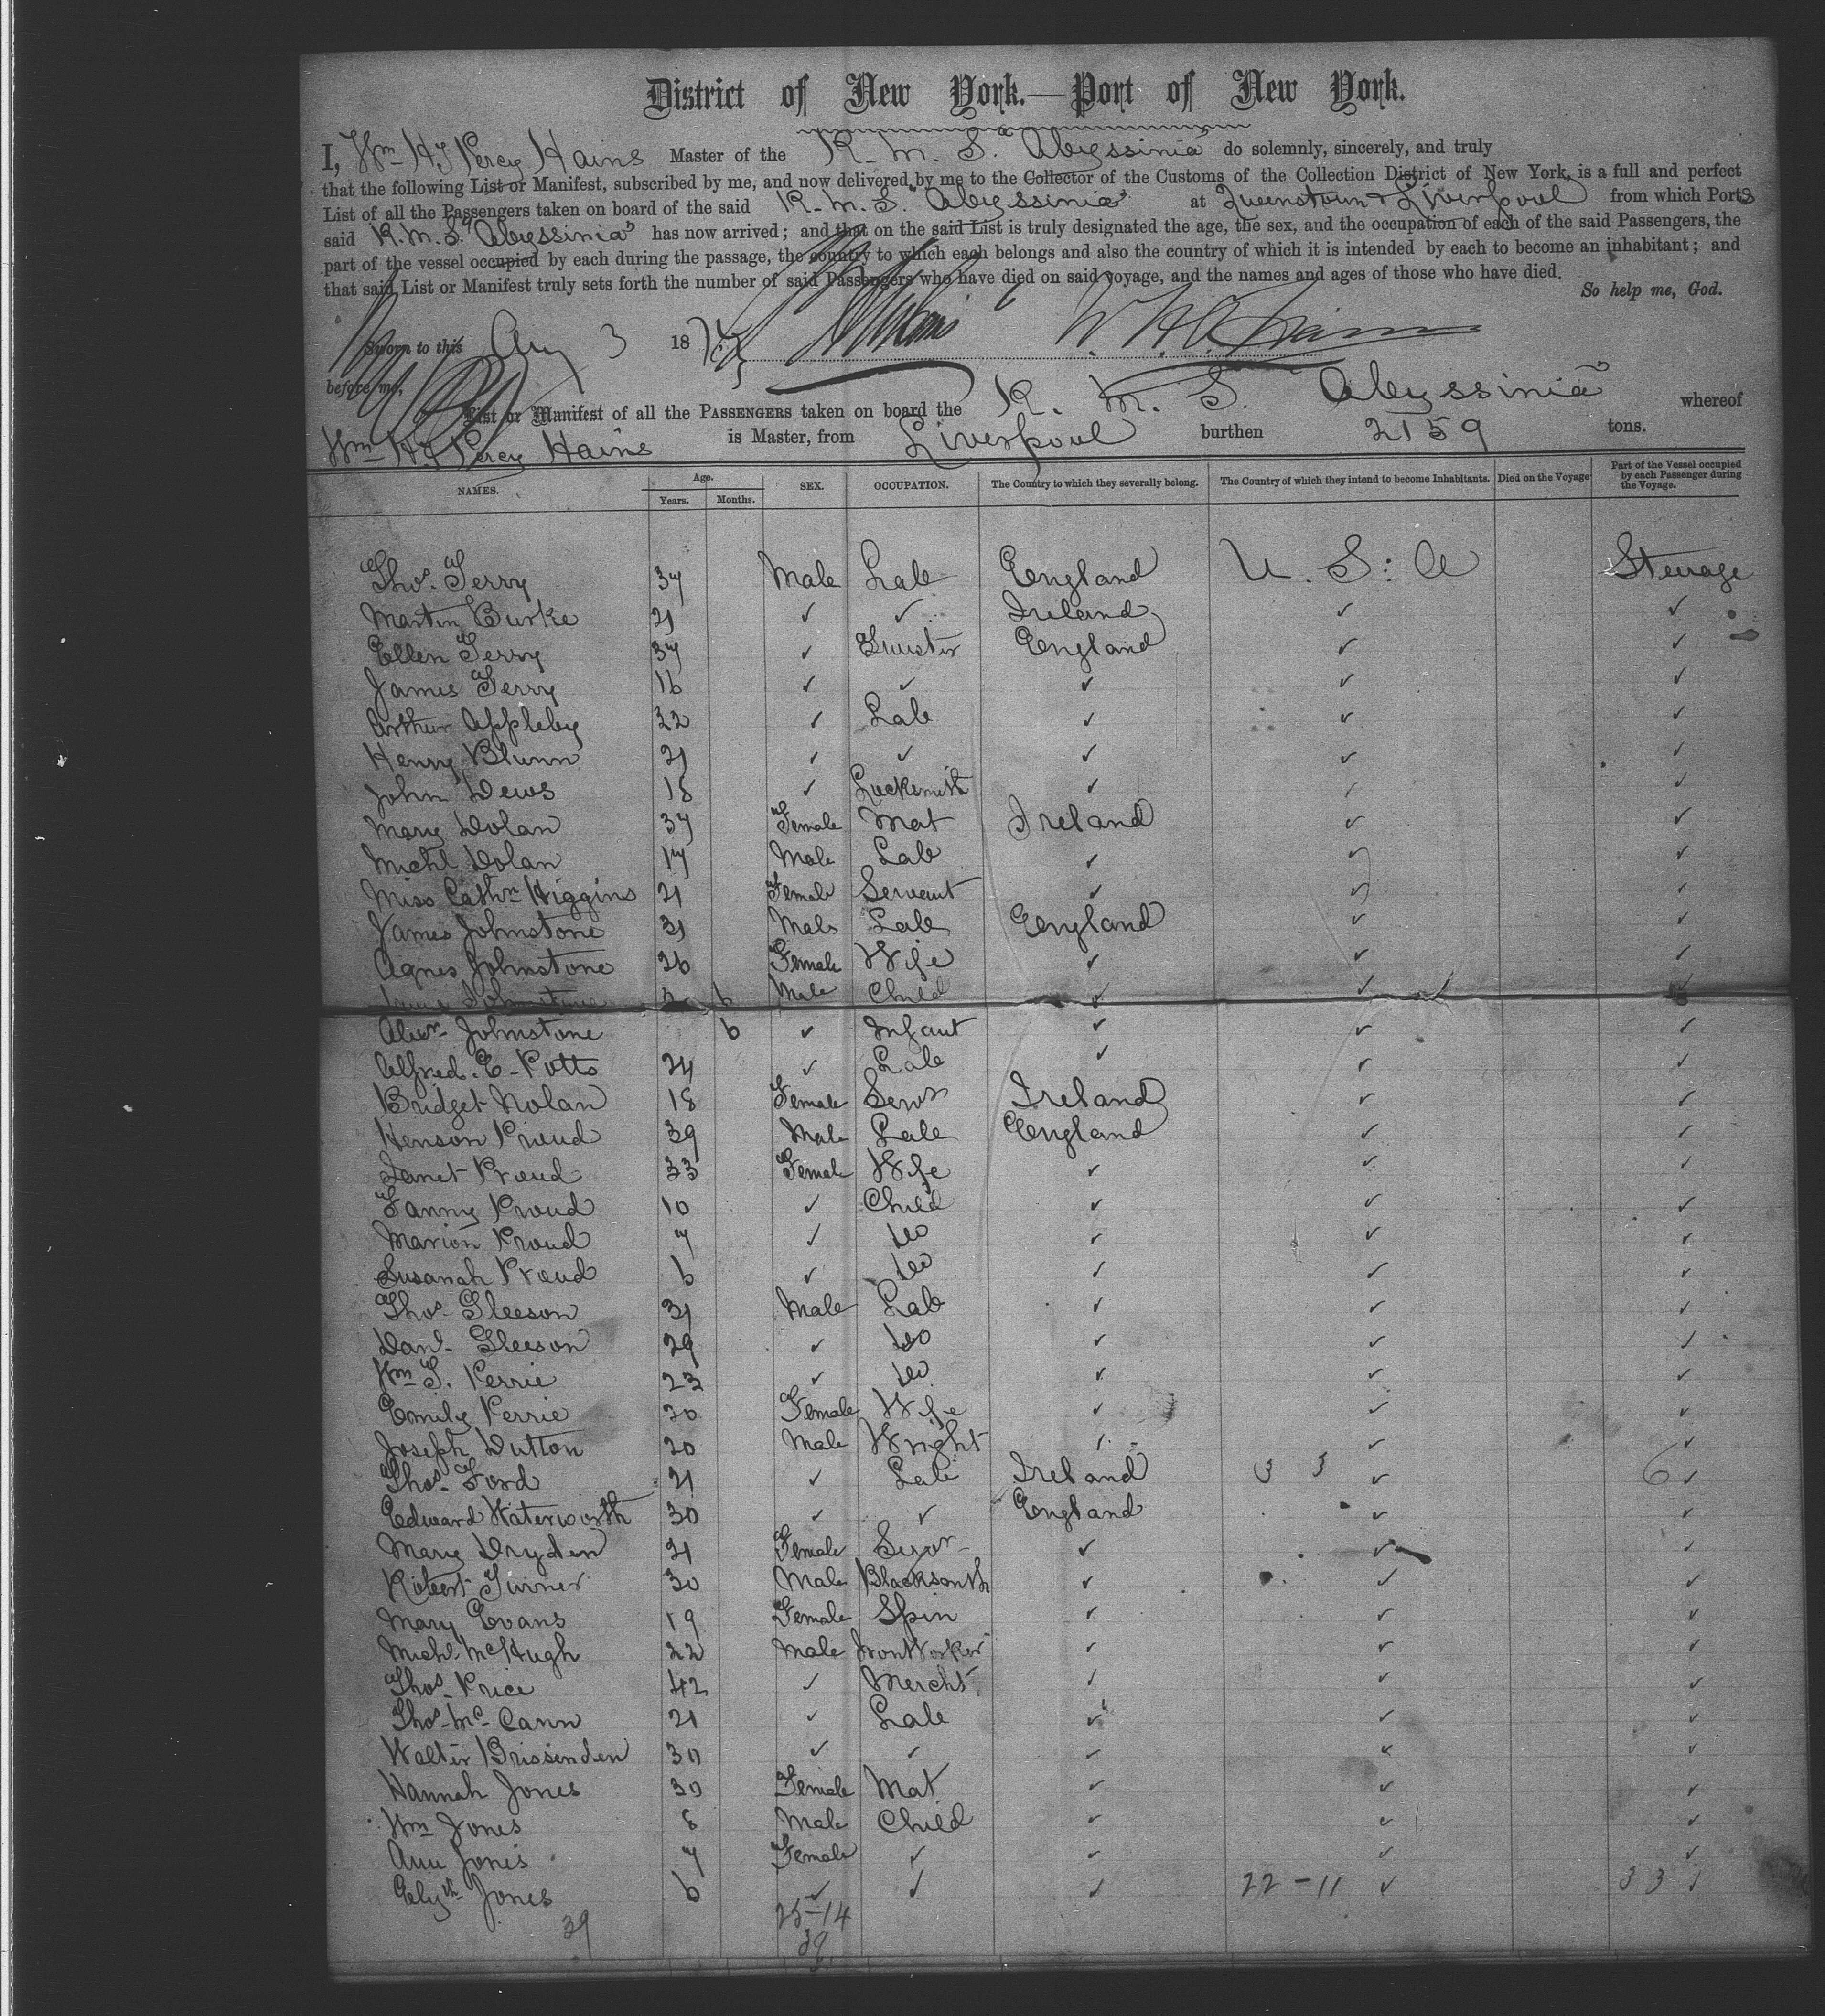 District of New York.—Port of New York.
I, Wm H. P. Percy Hains Master of the R. M. S. "Abyssinia" do solemnly, sincerely, and truly
that the following List or Manifest, subscribed by me, and now delivered by me to the Collector of the Customs of the Collection District of New York, is a full and perfect
List of all the Passengers taken on board of the said R. M. S. "Abyssinia" at Queenstown & Liverpool from which Ports
said R. M. S. "Abyssinia" has now arrived; and that on the said List is truly designated the age, the sex, and the occupation of each of the said Passengers, the
part of the vessel occupied by each during the passage, the country to which each belongs and also the country of which it is intended by each to become an inhabitant; and
that said List or Manifest truly sets forth the number of said Passengers who have died on said voyage, and the names and ages of those who have died.
So help me, God.
Sworn to this Aug 3 187
before me,
List or Manifest of all the PASSENGERS taken on board the R. M. S. "Abyssinia" whereof
Wm H. Percy Hains is Master, from Liverpool burthen 2159 tons.
NAMES. Age. Years. Months. SEX. OCCUPATION. The Country to which they severally belong. The Country of which they intend to become Inhabitants. Died on the Voyage Part of the Vessel occupied by each Passenger during the Voyage.
Thos. Terry 37 Male Lab England U. S. A Steerage
Martin Burke 21 ✓ ✓ Ireland ✓ ✓
Ellen Terry 37 ✓ England ✓ ✓
James Terry 16 ✓ ✓ ✓ ✓ ✓
Arthur Appleby 22 ✓ Lab ✓ ✓ ✓
Henry Blunn 21 ✓ ✓ ✓ ✓ ✓
John Dews 18 ✓ Locksmith ✓ ✓ ✓
Mary Dolan 37 Female Mat Ireland ✓ ✓
Michl Dolan 17 Male Lab ✓ ✓ ✓
Miss Cathn Higgins 21 Female Servant ✓ ✓ ✓
James Johnstone 31 Male Lab England ✓ ✓
Agnes Johnstone 26 Female Wife ✓ ✓ ✓
Johnstone 6 Male Child ✓ ✓ ✓
Alexr Johnstone 6 ✓ Infant ✓ ✓ ✓
Alfred. E. Potts 24 ✓ Lab ✓ ✓ ✓
Bridget Nolan 18 Female Servt Ireland ✓ ✓
Henson Proud 39 Male Lab England ✓ ✓
Janet Proud 33 Female Wife ✓ ✓ ✓
Fanny Proud 10 ✓ Child ✓ ✓ ✓
Marion Proud 7 ✓ Do ✓ ✓ ✓
Susanah Proud 6 ✓ Do ✓ ✓ ✓
Thos. Gleeson 31 Male Lab ✓ ✓ ✓
Danl. Gleeson 29 ✓ Do ✓ ✓ ✓
Wm T. Perrie 23 ✓ Do ✓ ✓ ✓
Emily Perrie 20 Female Wife ✓ ✓ ✓
Joseph Dutton 20 Male Wright ✓ ✓ ✓
Thos. Ford 21 ✓ Lab Ireland 3 3 ✓ 6 ✓
Edward Waterworth 30 ✓ ✓ England ✓ ✓
Mary Dryden 21 Female ✓ ✓ ✓
Robert Turner 30 Male Blacksmith ✓ ✓ ✓
Mary Evans 19 Female Spin ✓ ✓ ✓
Michl. McHugh 22 Male Iron Worker ✓ ✓ ✓
Thos. Price 42 ✓ Mercht ✓ ✓ ✓
Thos. Mc Cann 21 ✓ Lab ✓ ✓ ✓
Walter Brissenden 30 ✓ ✓ ✓ ✓ ✓
Hannah Jones 30 Female Mat ✓ ✓ ✓
Wm Jones 8 Male Child ✓ ✓ ✓
Ann Jones 7 Female ✓ ✓ ✓ ✓
Elizth Jones 6 ✓ ✓ ✓ 22-11 ✓ 33 ✓
39 25-14
39